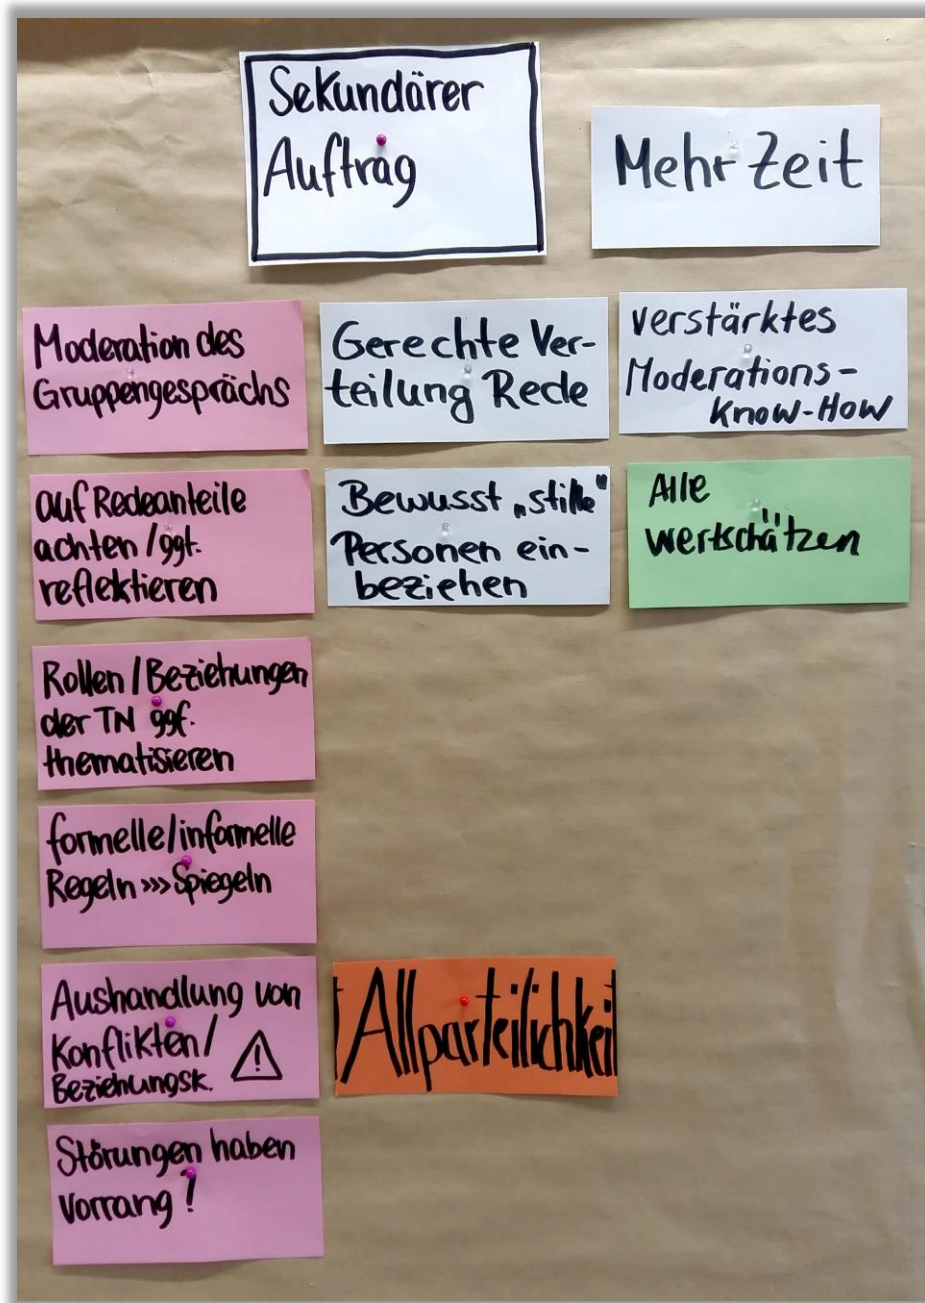 Sekundärer
Auftrag
Mehr Zeit
Moderation des
Gruppengesprächs
Gerechte Ver-
teilung Rede
verstärktes
Moderations-
Know-How
auf Redeanteile
achten / ggf.
reflektieren
Bewusst „stille"
Personen ein-
beziehen
Alle
wertschätzen
Rollen / Beziehungen
der TN ggf.
thematisieren
formelle/informelle
Regeln >>> Spiegeln
Aushandlung von
Konflikten/
Beziehungsk.
Allparteilichkeit
Störungen haben
Vorrang!